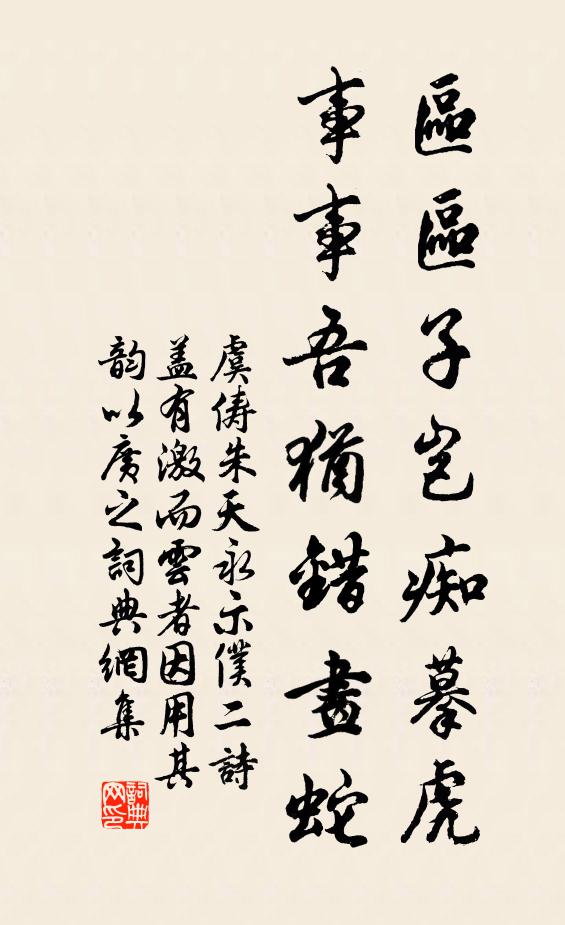 區區子豈痴摹虎
事事吾猶錯畫蛇
虞儔朱天永示僕二詩
盖有激而雲者因用其
韵以廣之詞典網集
詞典
网印